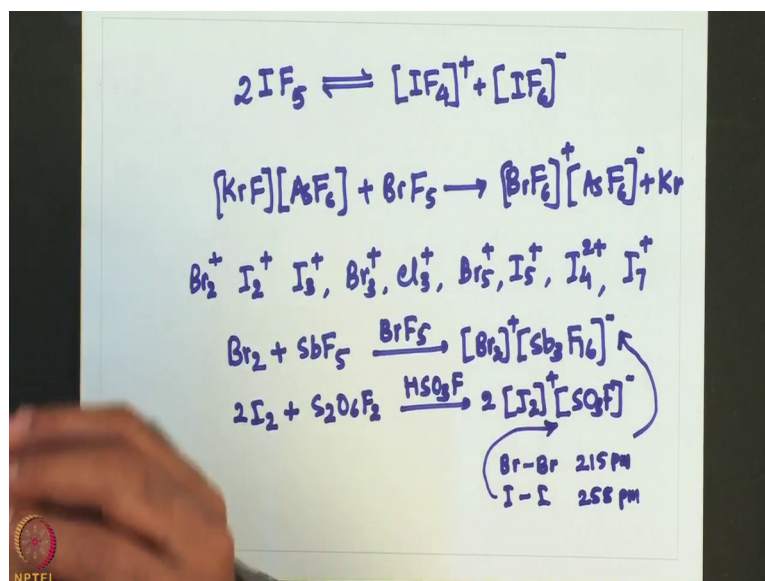 2IF₅ ⇌ [IF₄]⁺ + [IF₆]⁻
[KrF][AsF₆] + BrF₅ ⟶ [BrF₆]⁺[AsF₆]⁻ + Kr
Br₂⁺ I₂⁺ I₃⁺, Br₃⁺, Cl₃⁺, Br₅⁺, I₅⁺, I₄²⁺, I₇⁺
Br₂ + SbF₅ —BrF₅→ [Br₂]⁺[Sb₃F₁₆]⁻
2I₂ + S₂O₆F₂ —HSO₃F→ 2[I₂]⁺[SO₃F]⁻
Br-Br 215 pm
I-I 258 pm
NPTEL